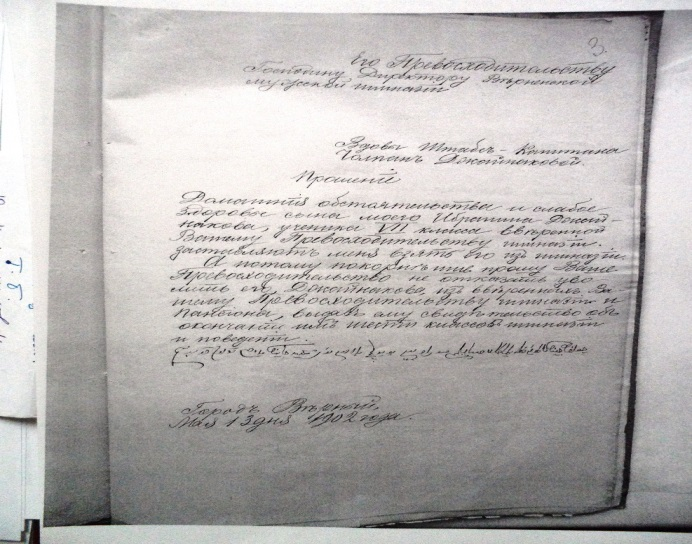 3.
Его Превосходительству
Господину Директору Вѣрненской
мужской гимназіи
Вдовы Штабсъ-Капитана
Чолпанъ Джайнаковой.
Прошеніе
Домашнія обстоятельства и слабое
здоровье сына моего Ибраима Джай-
накова, ученика VII класса ввѣренной
Вашему Превосходительству гимназіи.
заставляютъ меня взять его изъ гимназіи.
А потому покорнѣйше прошу Ваше
Превосходительство не отказать уво
лить его, Джайнакова, изъ ввѣренныхъ Ва-
шему Превосходительству гимназіи и
пансіона, выдавъ ему свидѣтельство объ
окончаніи имъ шести классовъ гимназіи
и поведеніи.
Городъ Вѣрный,
Мая 13 дня 1902 года.